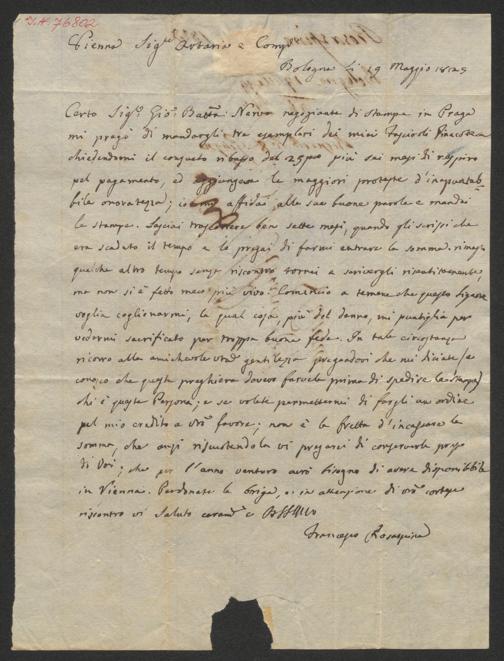 I.N. 76802
Vienna Sig.ri Artaria e Comp.
Bologna li 19 Maggio 1825
Certo Sig.r Gio: Batta: Nervo negoziante di Stampe in Praga
mi pregò di mandargli tre esemplari dei miei Fascicoli
chiedendomi il consueto ribasso del 25 più sei mesi di respiro
pel pagamento, ed aggiungeva le maggiori proteste d'inappunta
bile onoratezza; io mi affidai alle sue buone parole e mandai
le stampe. Lasciai trascorrere ben sette mesi, quando gli scrissi che
era scaduto il tempo e lo pregai di farmi entrare la somma. rimasi
qualche altro tempo senza riscontro tornai a scrivergli
ma non si è fatto meco più vivo. Comincio a temere che questo Signore
voglia coglionarmi, la qual cosa, più del danno, mi per
vedermi sacrificato per troppa buona fede. In tale circostanza
ricorro alla amichevole vra gentilezza pregandovi che mi diciate (e
conosco che questa preghiera dovevo farvela prima di spedire le stampe)
chi è questa Persona; e se volete permettermi di fargli un ordine
pel mio credito a vro favore; non è la fretta d'incassare la
somma, che anzi riscuotendola vi pregarei di conservarla presso
di Voi; che per l'anno venturo avrò bisogno di avere disponibile
in Vienna. Perdonate la briga, e in attenzione di vro cortese
riscontro vi saluto
Francesco Rosaspina